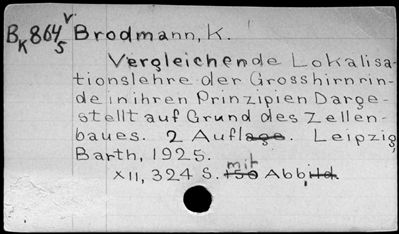 BK 864 v5 Brodmann, K.
Vergleichende Lokalisa-
tionslehre der Grosshirnrin-
de in ihren Prinzipien Darge-
stellt auf Grund des Zellen-
baues. 2 Auflage. Leipzig,
Barth, 1925.
XII, 324 S. mit 150 Abbild.